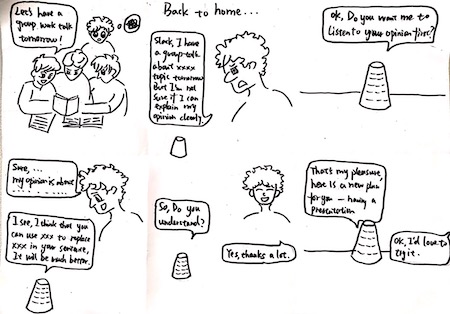 Let's have a
group work talk
tomorrow!
Back to home...
Slack, I have
a group-talk
about xxxx
topic tomorrow
But I'm not
sure if I can
explain my
opinion clearly.
Ok, Do you want me to
Listen to your opinion first?
Sure, ...
my opinion is about
I see, I think that you
can use xxx to replace
xxx in your sentence,
It will be much better.
So, Do you
understand?
Yes, thanks a lot.
That's my pleasure,
here is a new plan
for you - having a
presentation
Ok, I'd love to
try it.